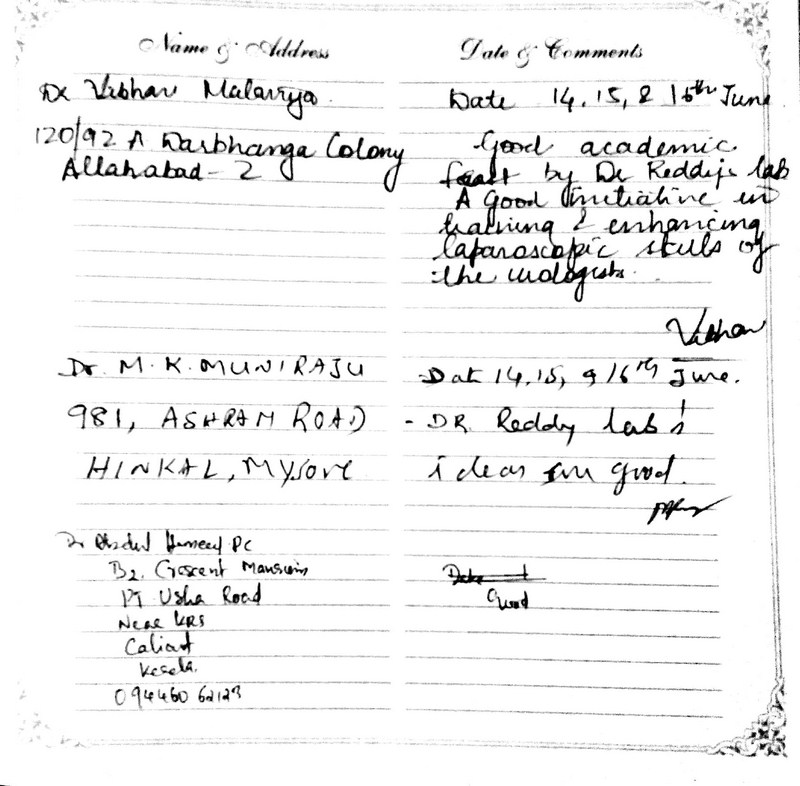 Name & Address
Dr Vibhav Malaviya
120/92 A Darbhanga Colony
Allahabad - 2
Dr. M. K. MUNIRAJU
981, ASHRAM ROAD
HINKAL, MYSORE
Dr Abdul Hameed PC
B2, Crescent Mansions
PT Usha Road
Near KRS
Calicut
Kerala.
094460 62123
Date & Comments
Date 14, 15, & 16th June
Good academic
feast by Dr Reddy's lab
A Good initiative in
training & enhancing
laparoscopic skills of
the urologists.
Vibhav
Date 14, 15, & 16th June.
- DR. Reddy lab's
ideas are good.
Good